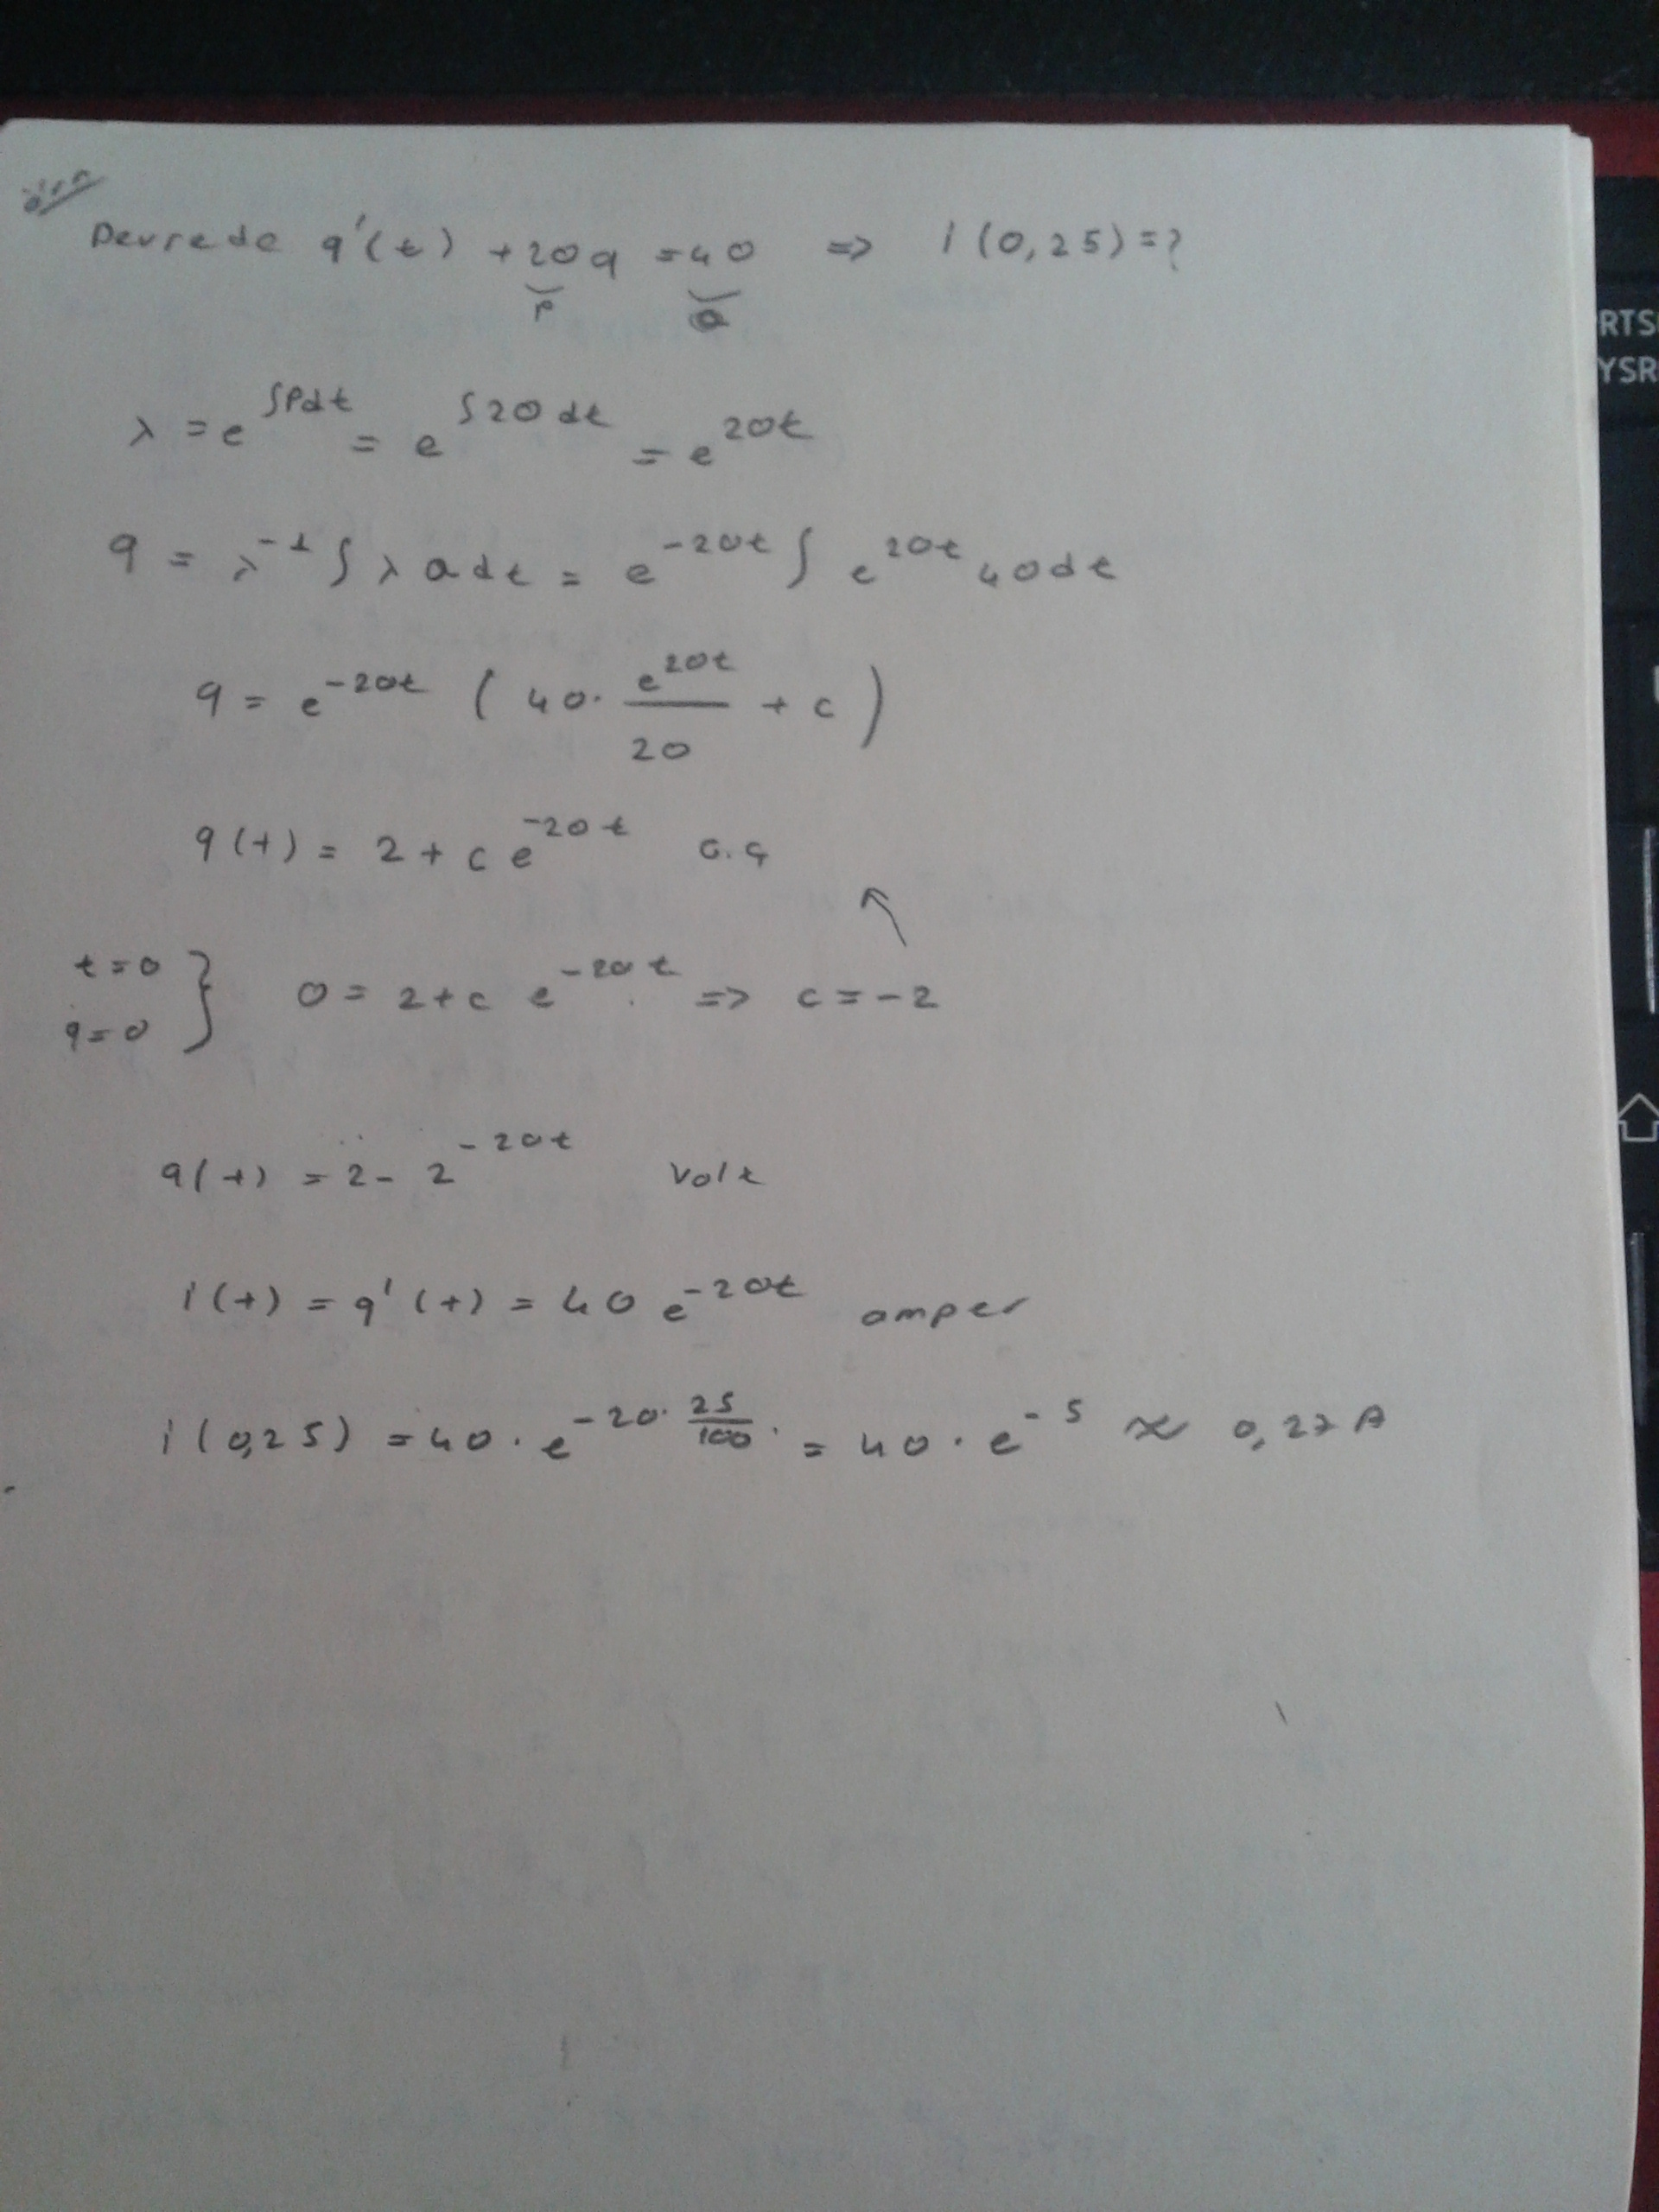 örn
Devrede q'(t) + 20q = 40 => i(0,25) = ?
P Q
λ = e^∫Pdt = e^∫20dt = e^20t
q = λ^-1 ∫ λ Q dt = e^-20t ∫ e^20t 40dt
q = e^-20t ( 40. e^20t / 20 + c )
q(t) = 2 + c e^-20t G.Ç
t=0
q=0 } 0 = 2 + c e^-20t => c = -2
q(t) = 2 - 2^-20t Volt
i(t) = q'(t) = 40 e^-20t amper
i(0,25) = 40 . e^-20. 25/100 = 40 . e^-5 ≈ 0,27 A
RTS
YSR